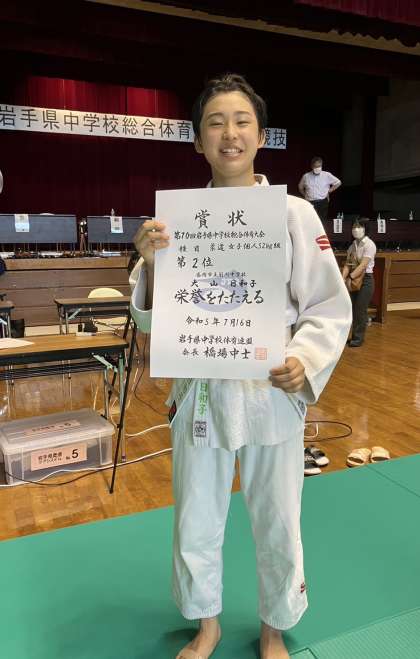 岩手県中学校総合体育 競技
賞状
第70回岩手県中学校総合体育大会
種目 柔道 女子個人52kg級
第2位
大山 日和子
栄誉をたたえる
令和5年7月16日
岩手県中学校体育連盟
会長 橋場中士
日和子
5